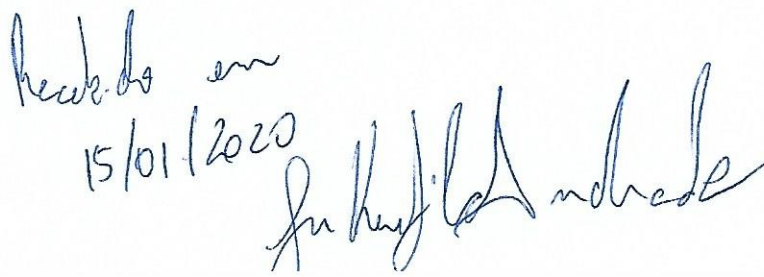 Recebido em
15/01/2020
Andrade